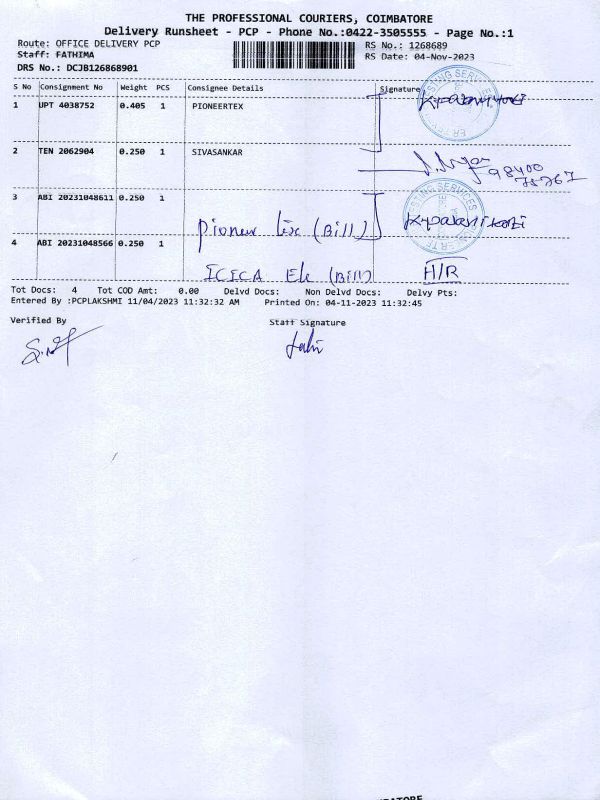 THE PROFESSIONAL COURIERS, COIMBATORE
Delivery Runsheet - PCP - Phone No.:0422-3505555 - Page No.:1
Route: OFFICE DELIVERY PCP
RS No.: 1268689
Staff: FATHIMA
RS Date: 04-Nov-2023
DRS No.: DCJB126868901
S No Consignment No Weight PCS Consignee Details Signature
1 UPT 4038752 0.405 1 PIONEERTEX
2 TEN 2062904 0.250 1 SIVASANKAR
98400
3 ABI 20231048611 0.250 1
TESTING SERVICES
(Bill)
4 ABI 20231048566 0.250 1
(Bill) H/R
Tot Docs: 4 Tot COD Amt: 0.00 Delvd Docs: Non Delvd Docs: Delvy Pts:
Entered By :PCPLAKSHMI 11/04/2023 11:32:32 AM Printed On: 04-11-2023 11:32:45
Verified By Staff Signature